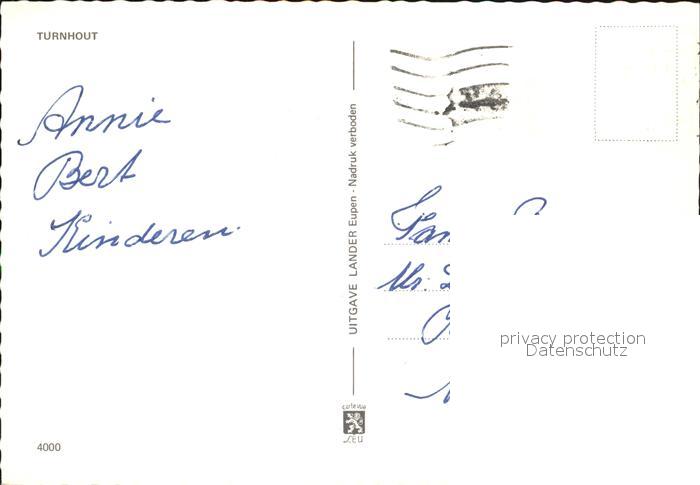 TURNHOUT
Annie
Bert
Kinderen.
4000
UITGAVE LANDER Eupen - Nadruk verboden
carte vue
LEU
Fam
Mr.
privacy protection
Datenschutz